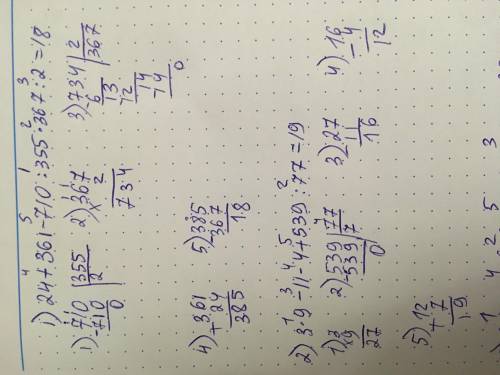 1) 24+361-710:355·367:2=18
4 5 1 2 3
1) 710 |355
-710 2
0
2) 367
× 2
734
3) 734 |2
6 367
13
12
14
14
0
4) 361
+ 24
385
5) 385
- 367
18
2) 3·9-11-4+539:77=19
1 3 4 5 2
1) 3
×9
27
2) 539 |77
-539 7
0
3) 27
- 11
16
4) 16
- 4
12
5) 12
+ 7
19
1 4 2 5 3